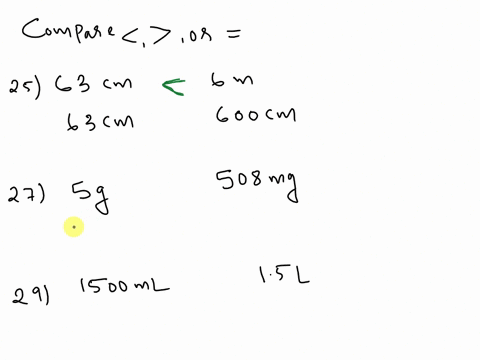 Compare <, >, or =
25) 63 cm < 6 m
63 cm 600 cm
27) 5g 508 mg
29) 1500 mL 1.5 L